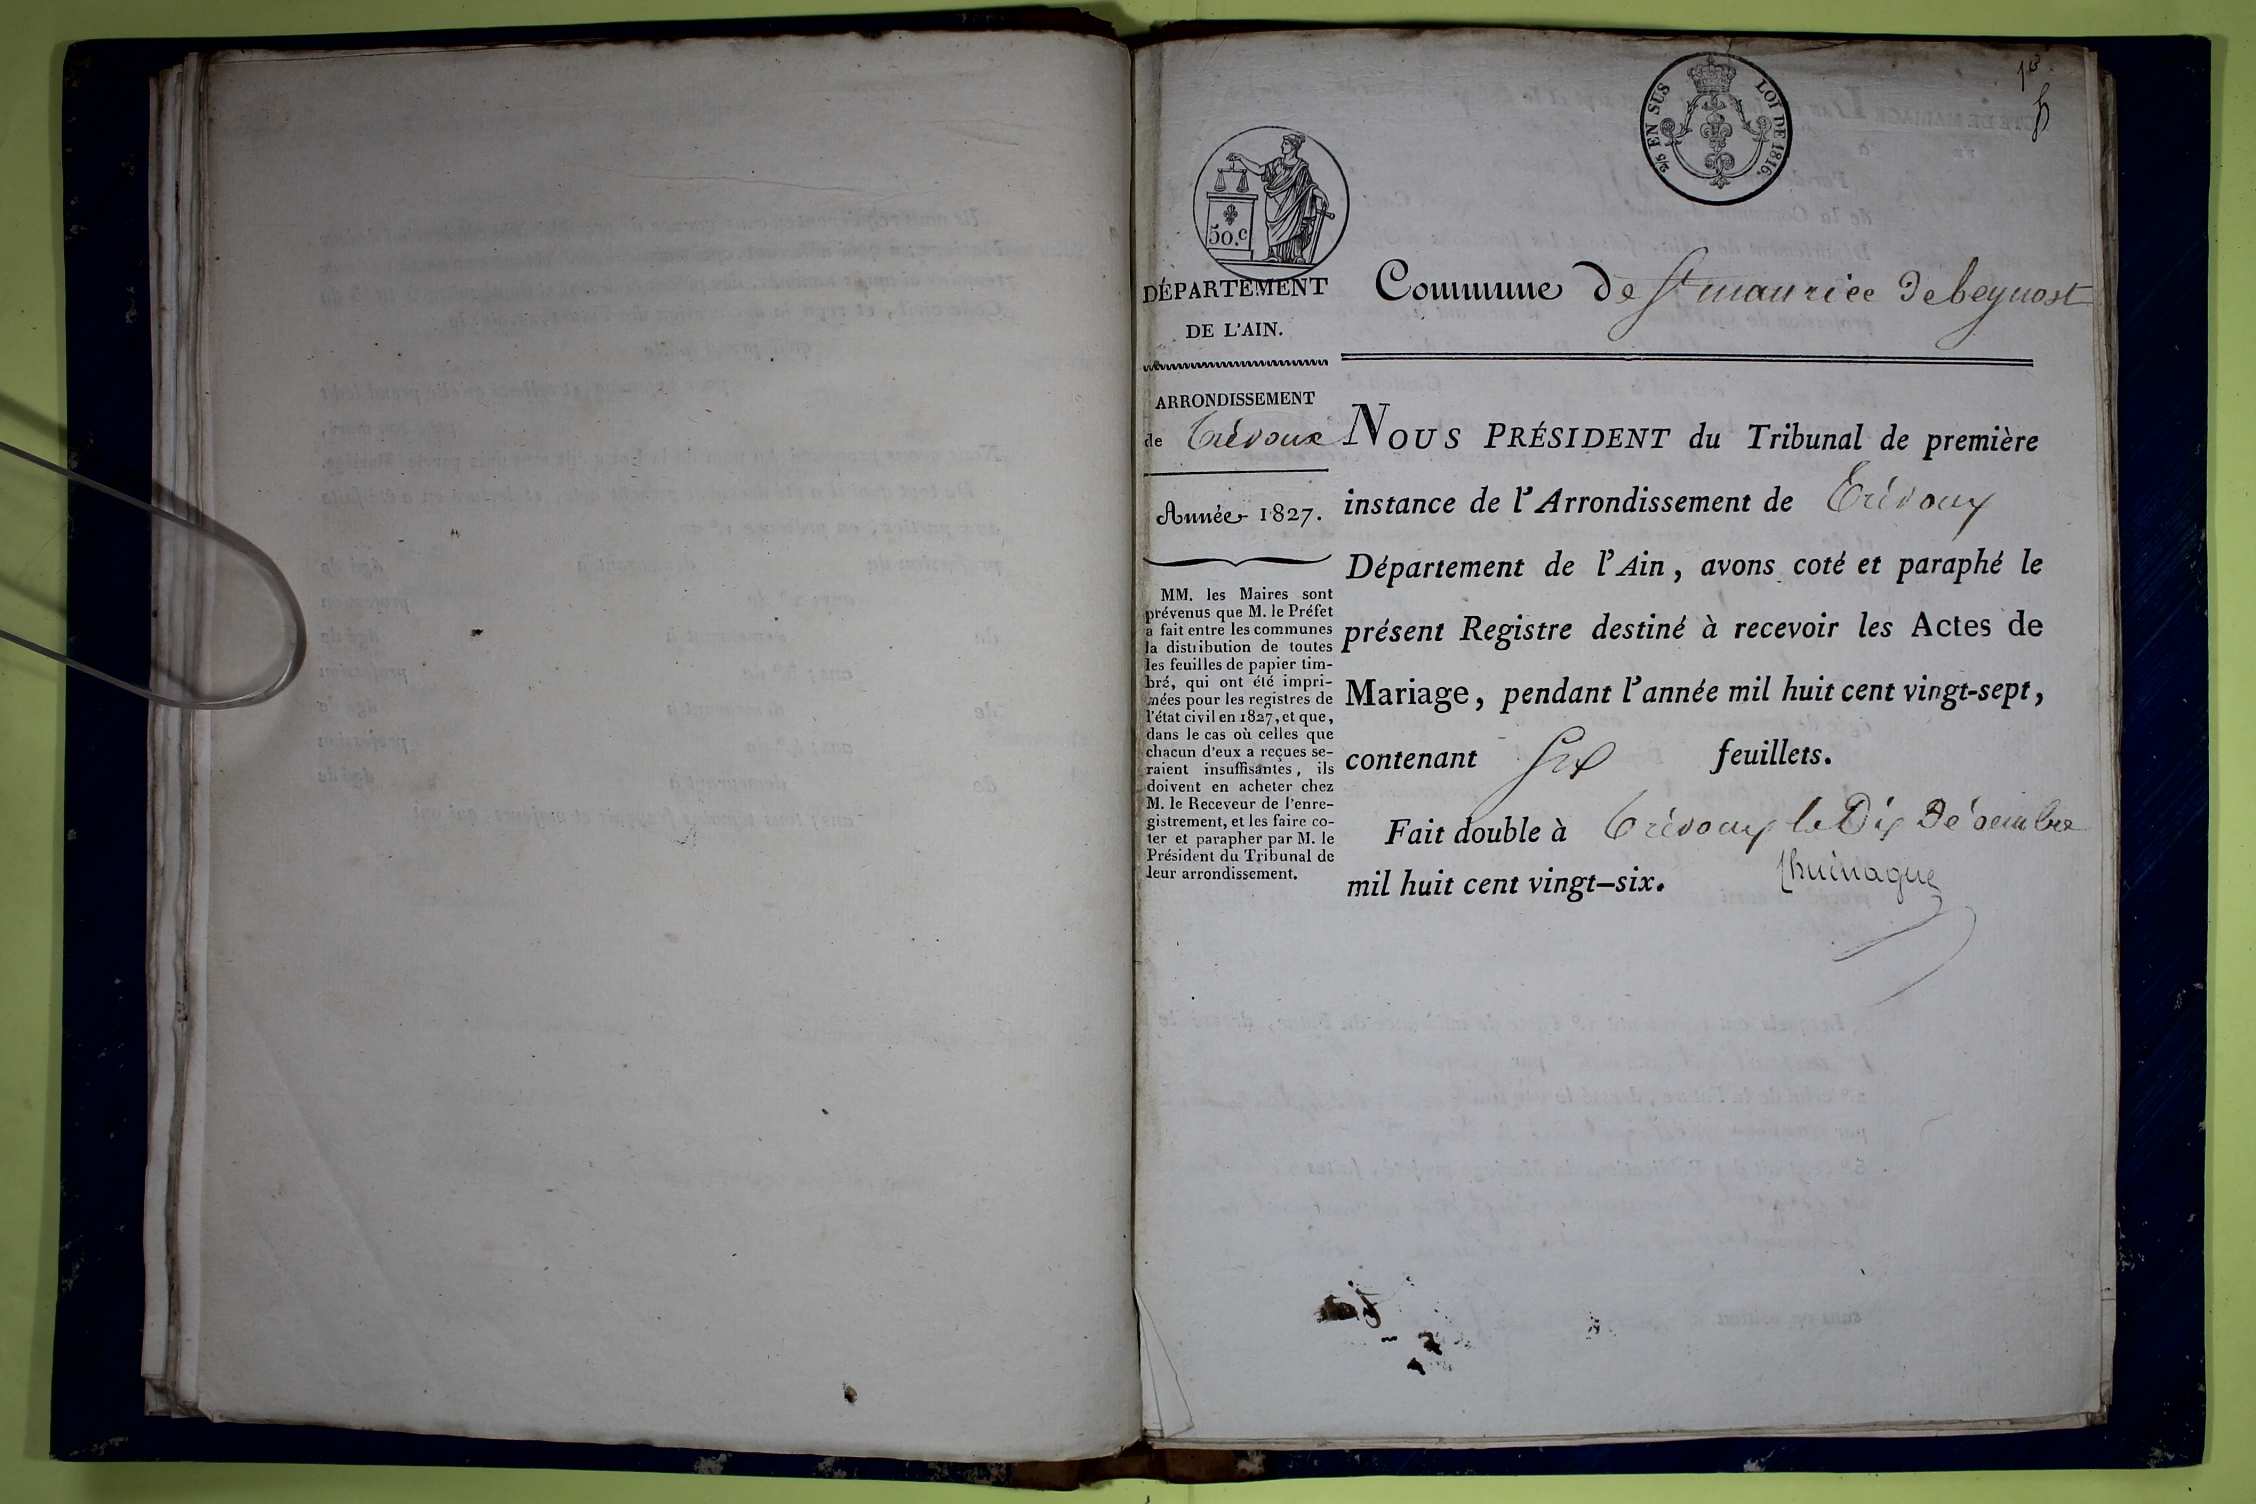 2/5 EN SUS LOI DE 1816.
50.c
DÉPARTEMENT
DE L'AIN.
Commune de St maurice Debeynost
ARRONDISSEMENT
de Trévoux
Année 1827.
MM. les Maires sont
prévenus que M. le Préfet
a fait entre les communes
la distribution de toutes
les feuilles de papier tim-
bré, qui ont été impri-
mées pour les registres de
l'état civil en 1827, et que,
dans le cas où celles que
chacun d'eux a reçues se-
raient insuffisantes, ils
doivent en acheter chez
M. le Receveur de l'enre-
gistrement, et les faire co-
ter et parapher par M. le
Président du Tribunal de
leur arrondissement.
NOUS PRÉSIDENT du Tribunal de première
instance de l'Arrondissement de Trévoux
Département de l'Ain, avons coté et paraphé le
présent Registre destiné à recevoir les Actes de
Mariage, pendant l'année mil huit cent vingt-sept,
contenant Six feuillets.
Fait double à Trévoux le Dix Décembre
mil huit cent vingt-six.